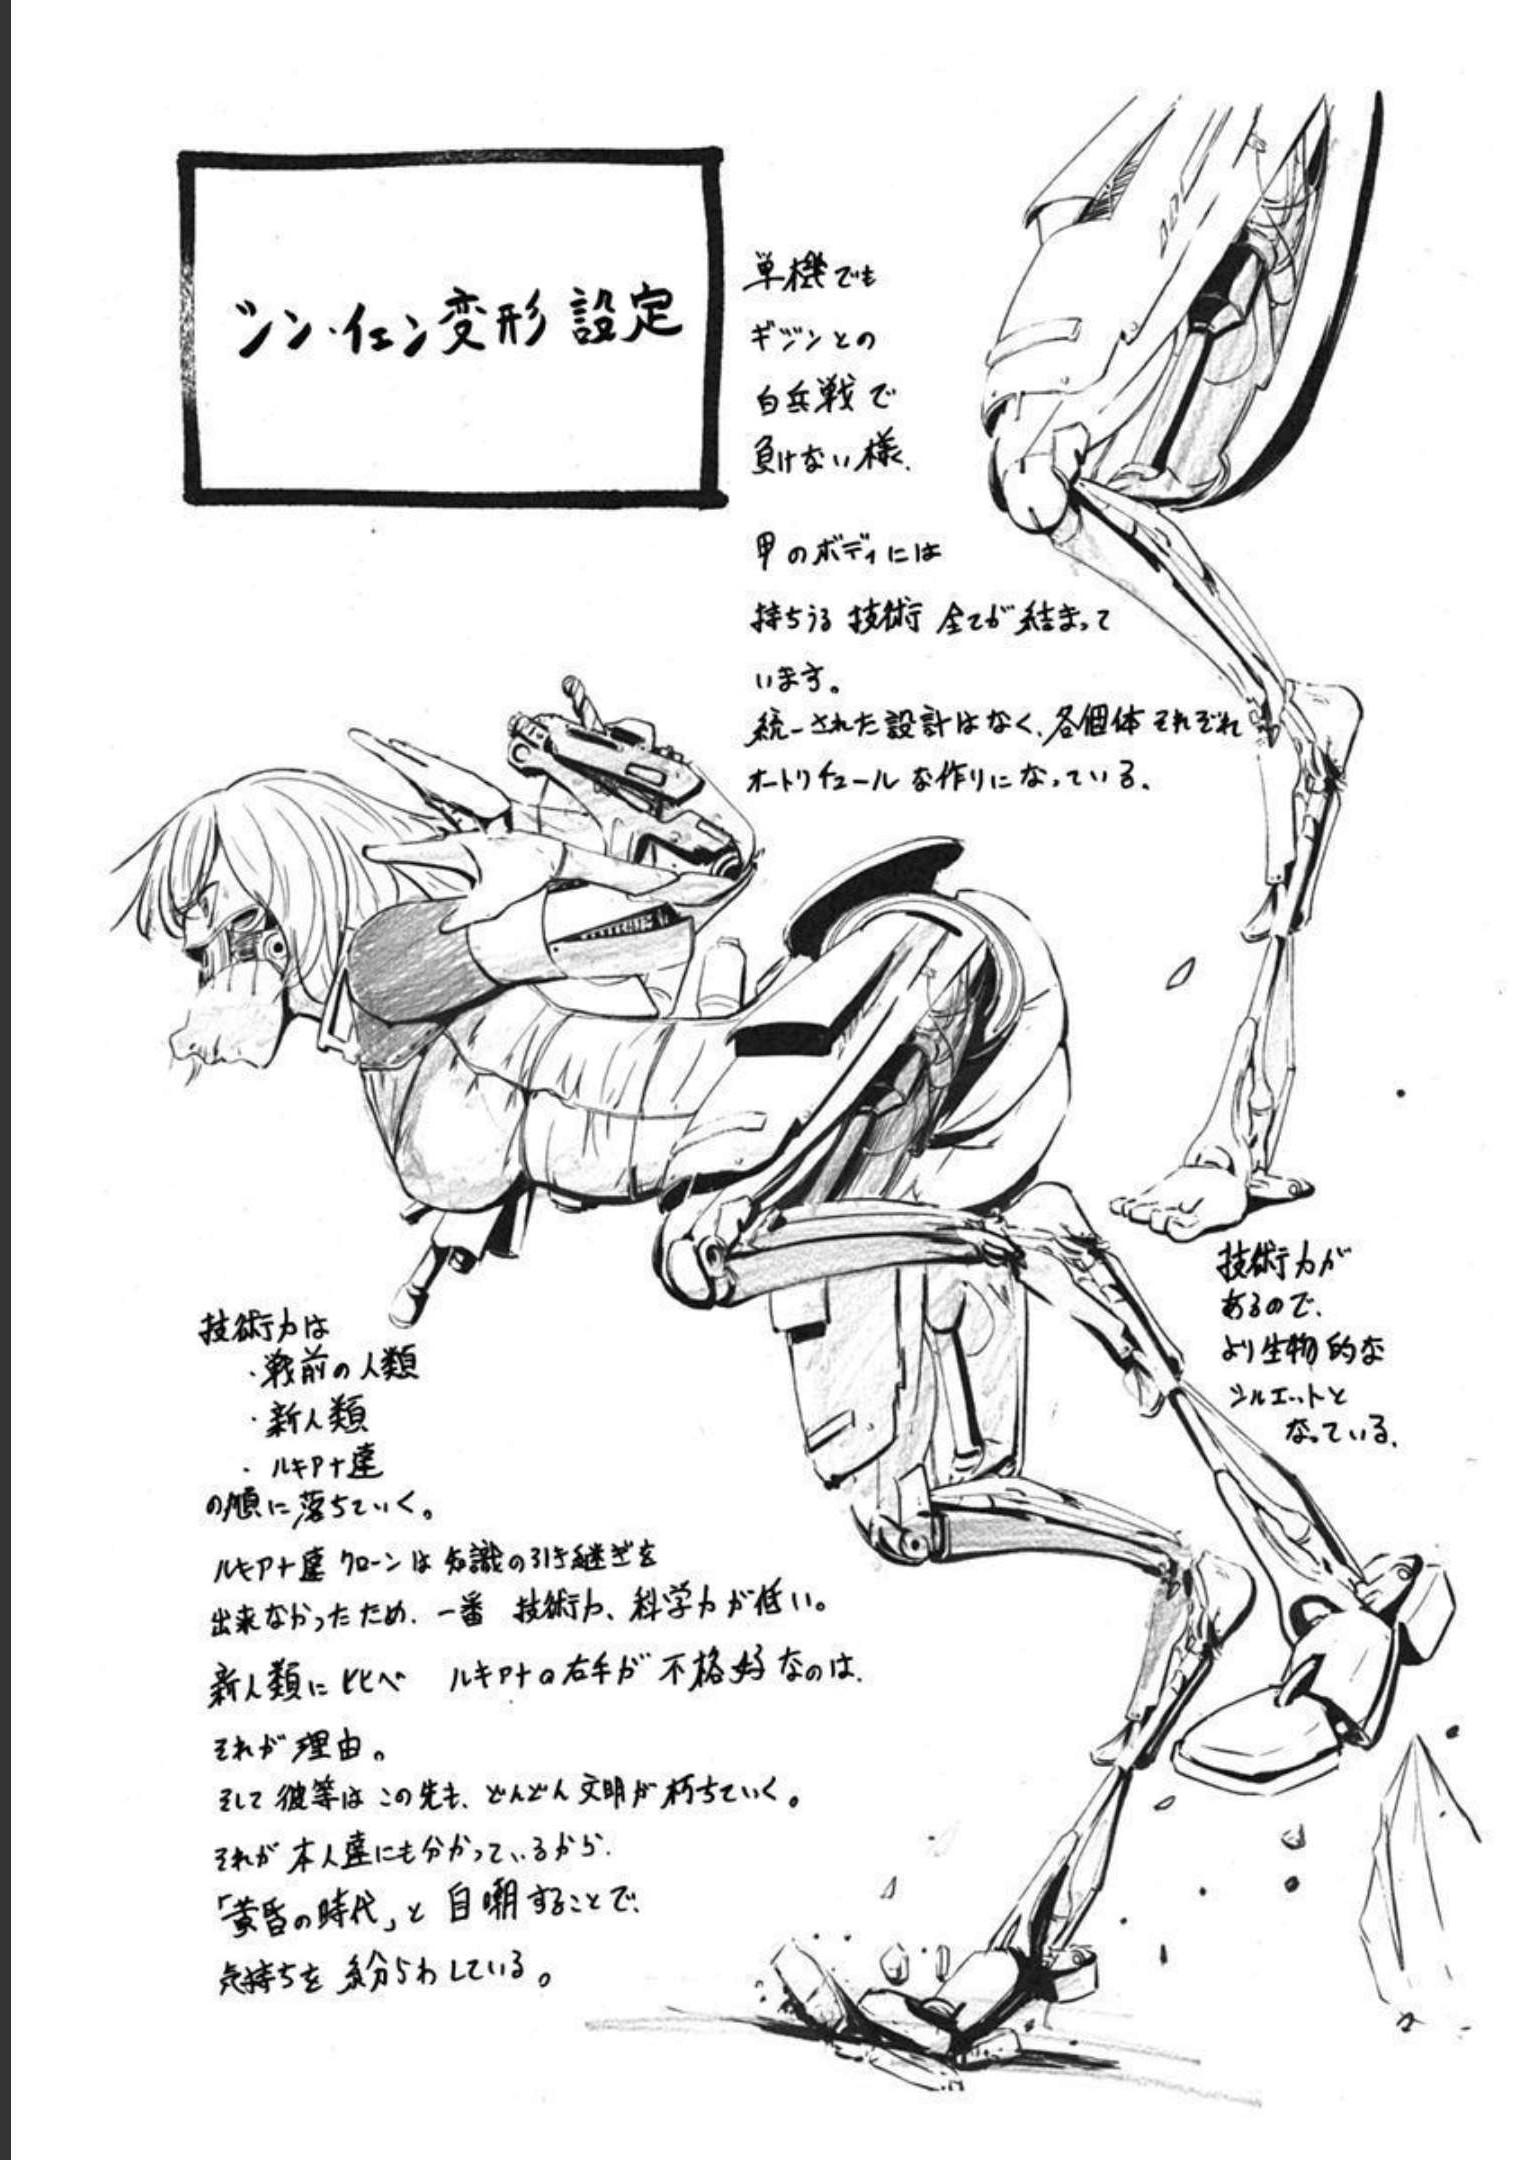 シン・イェン変形設定
単機でも
ギジンとの
白兵戦で
負けない様、
甲のボディには
持ちうる技術全てが結まって
います。
統一された設計はなく、各個体それぞれ
オートリチュールな作りになっている。
技術力が
あるので、
より生物的な
シルエットと
なっている。
技術力は
・戦前の人類
・新人類
・ルキアナ達
の順に落ちていく。
ルキアナ達クローンは知識の引き継ぎを
出来なかったため、一番 技術力、科学力が低い。
新人類に比べ ルキアナの右手が不格好なのは、
それが理由。
そして彼等はこの先も、どんどん文明が朽ちていく。
それが本人達にも分かっているから、
「黄昏の時代」と自嘲することで、
気持ちを紛らわしている。